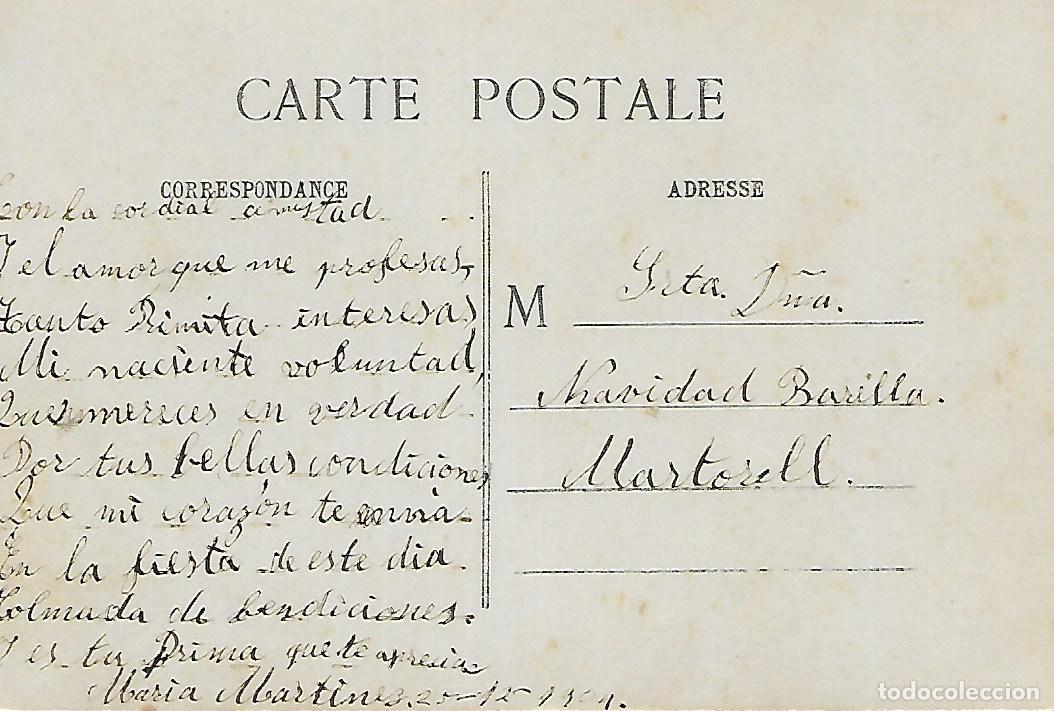 CARTE POSTALE
CORRESPONDANCE
Con la cordial amistad
Y el amor que me profesas,
Tanto Primita interesas
Mi naciente voluntad,
Que mereces en verdad
Por tus bellas condiciones
Que mi corazón te envia
En la fiesta de este dia
Colmada de bendiciones.
Y es tu Prima que te aprecia
Maria Martinez. 25-12-
ADRESSE
M Srta. Dña.
Navidad Barilla.
Martorell.
todocoleccion